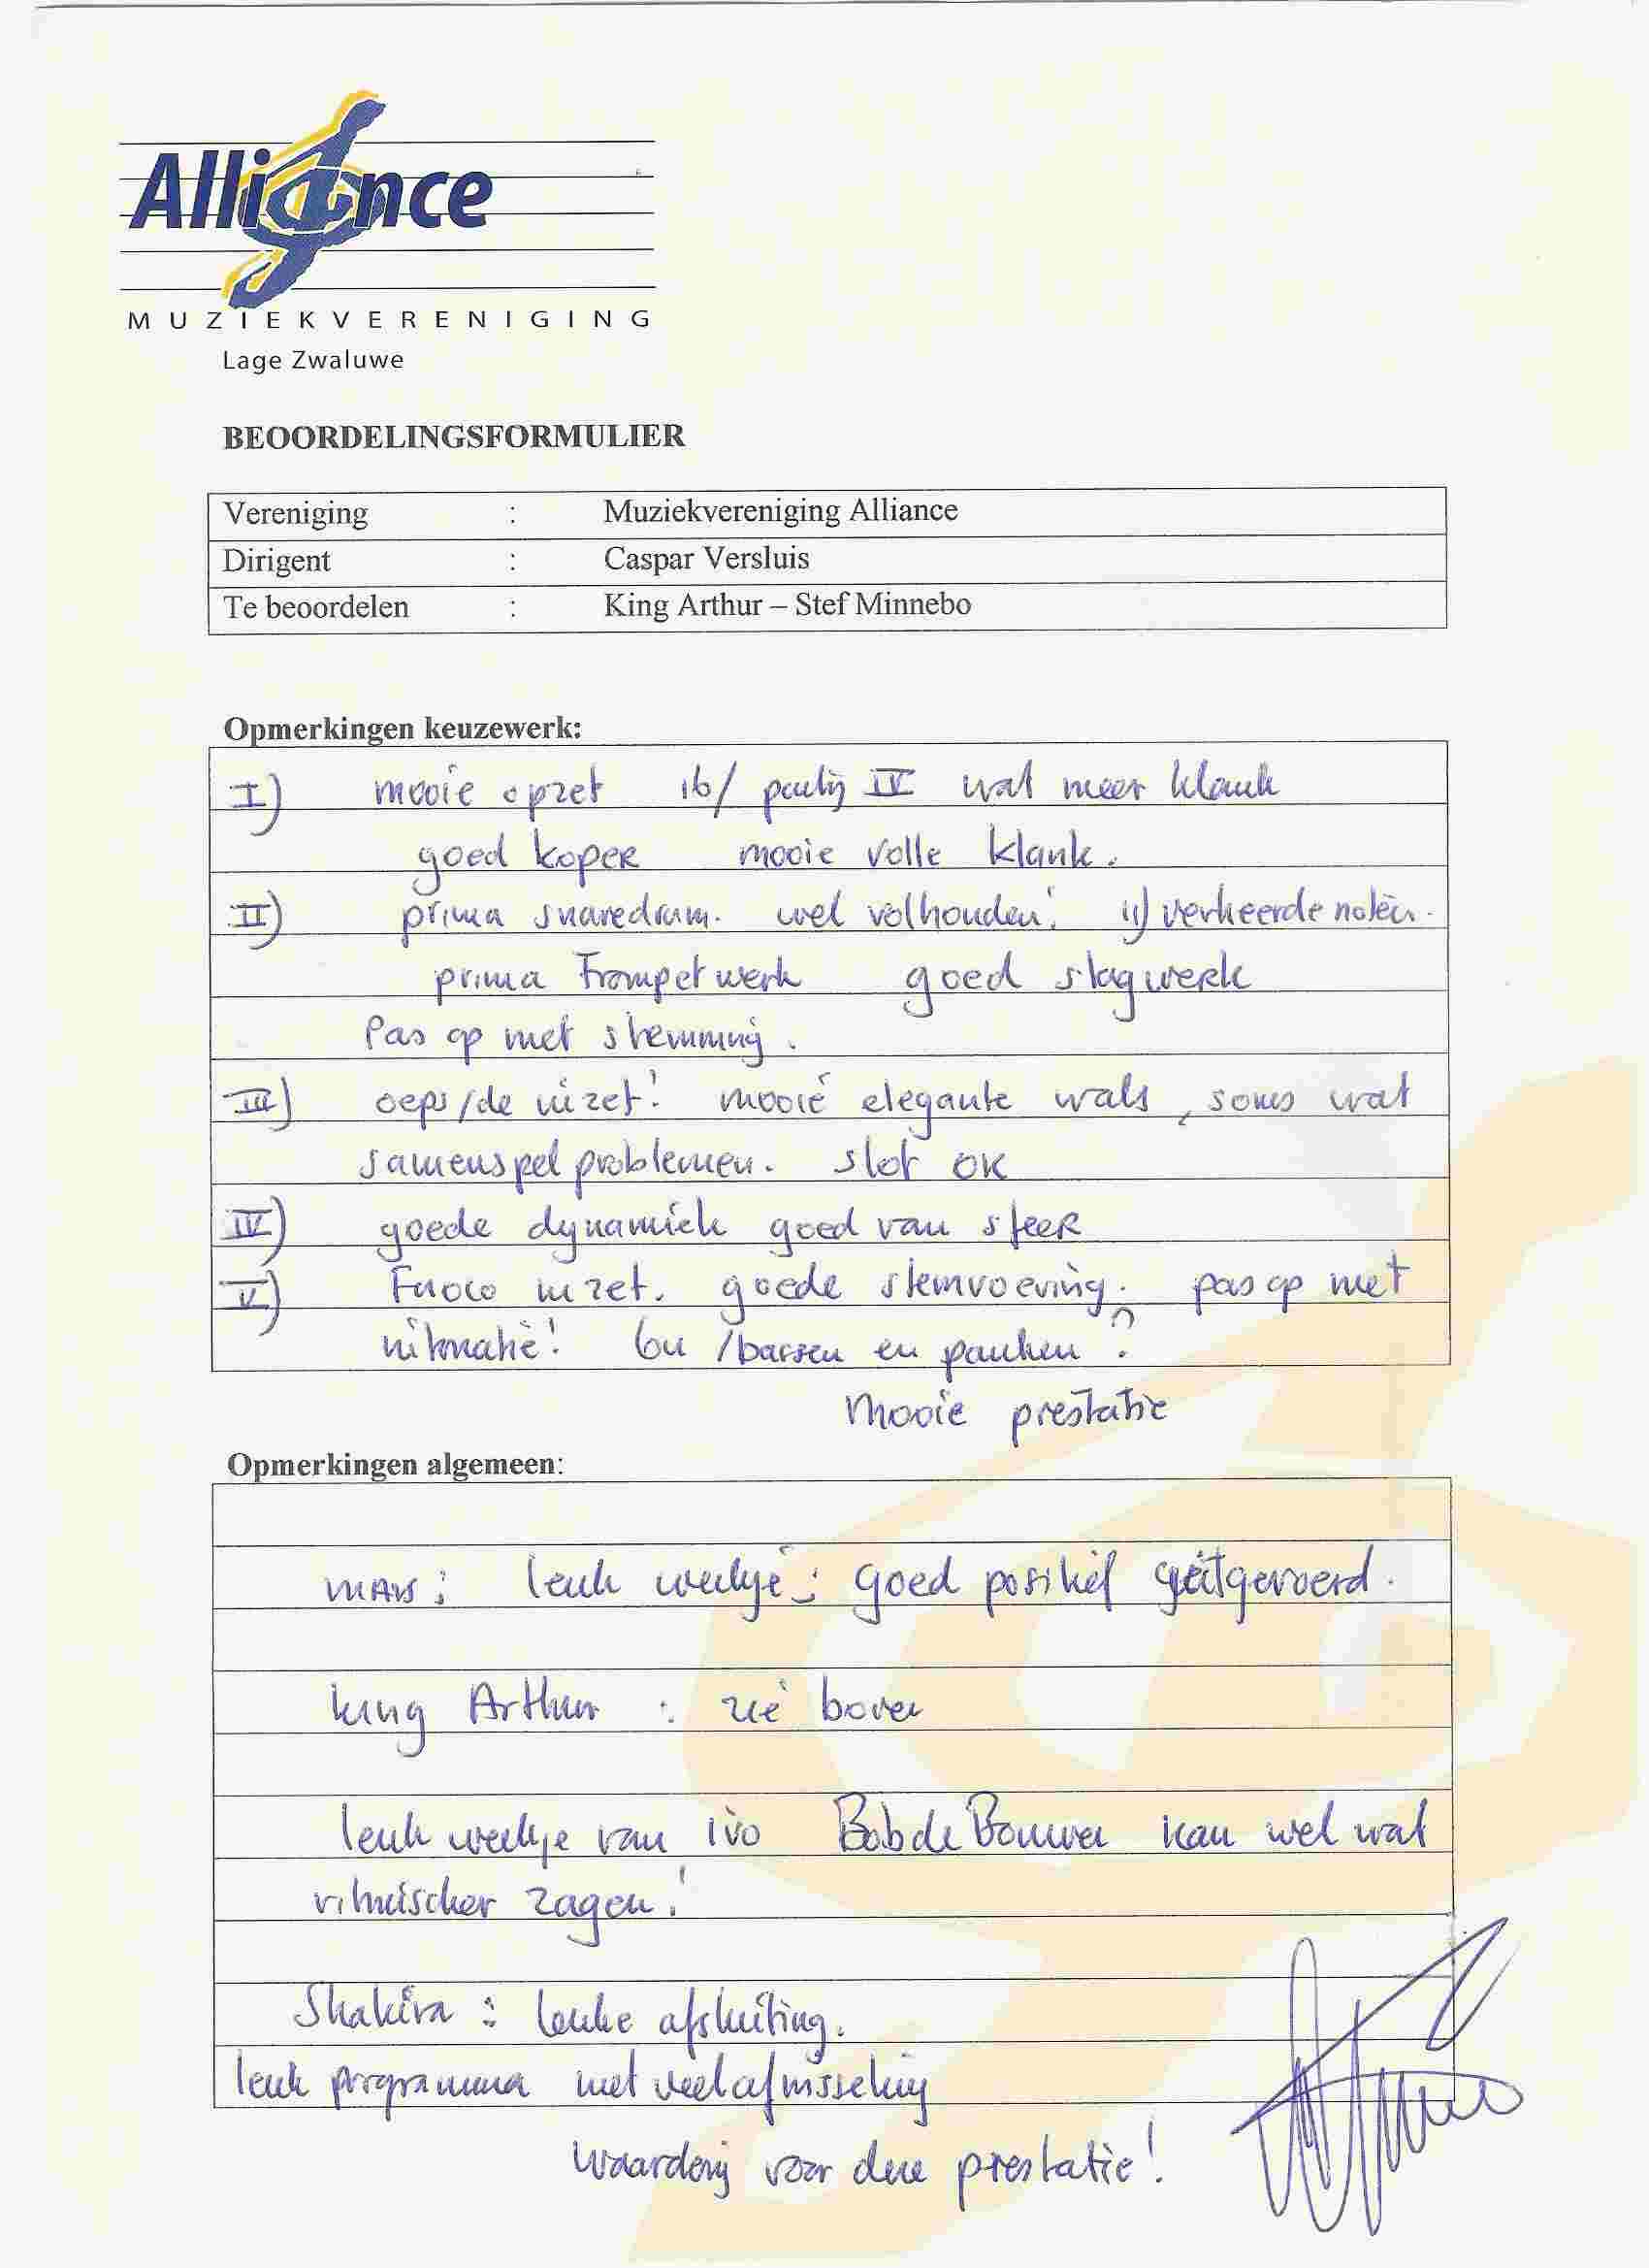 Alliance
MUZIEKVERENIGING
Lage Zwaluwe
BEOORDELINGSFORMULIER
Vereniging : Muziekvereniging Alliance
Dirigent : Caspar Versluis
Te beoordelen : King Arthur – Stef Minnebo
Opmerkingen keuzewerk:
I) mooie opzet 16/ partij IV wat meer klank
goed koper mooie volle klank.
II) prima snaredrum. wel volhouden! 11) verkeerde noten.
prima Trompetwerk goed slagwerk
Pas op met stemming.
III) oeps/de inzet! mooie elegante wals, soms wat
samenspel problemen. slot OK
IV) goede dynamiek goed van sfeer
V) Fuoco inzet. goede stemvoering. pas op met
intonatie! 64 /bassen en pauken?
Mooie prestatie
Opmerkingen algemeen:
mars: leuk werkje: goed positief geüitgevoerd.
King Arthur : zie boven
leuk werkje van Ivo Bob de Bouwer kan wel wat
ritmischer zagen!
Shakira : leuke afsluiting.
leuk programma met veel afwisseling
waardering voor deze prestatie!